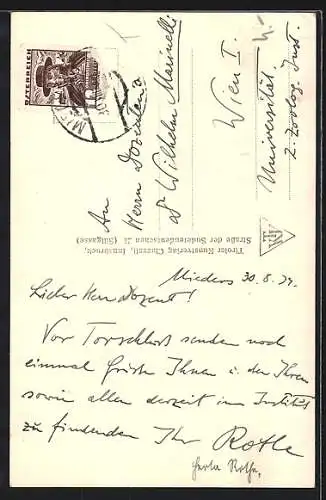 ÖSTERREICH
An
Herrn Dozenten
Dr Wilhelm Marinelli
Wien I.
Universität.
2. Zoolog. Inst.
Tiroler Kunstverlag Chizzali, Innsbruck,
Straße der Sudetendeutschen 21 (Sillgasse)
Mieders 30.8.34.
Lieber Herr Dozent!
Vor Torschluß senden noch
einmal Grüße Ihnen u. den Ihren
sowie allen derzeit im Institut
zu findenden Ihr Rotle